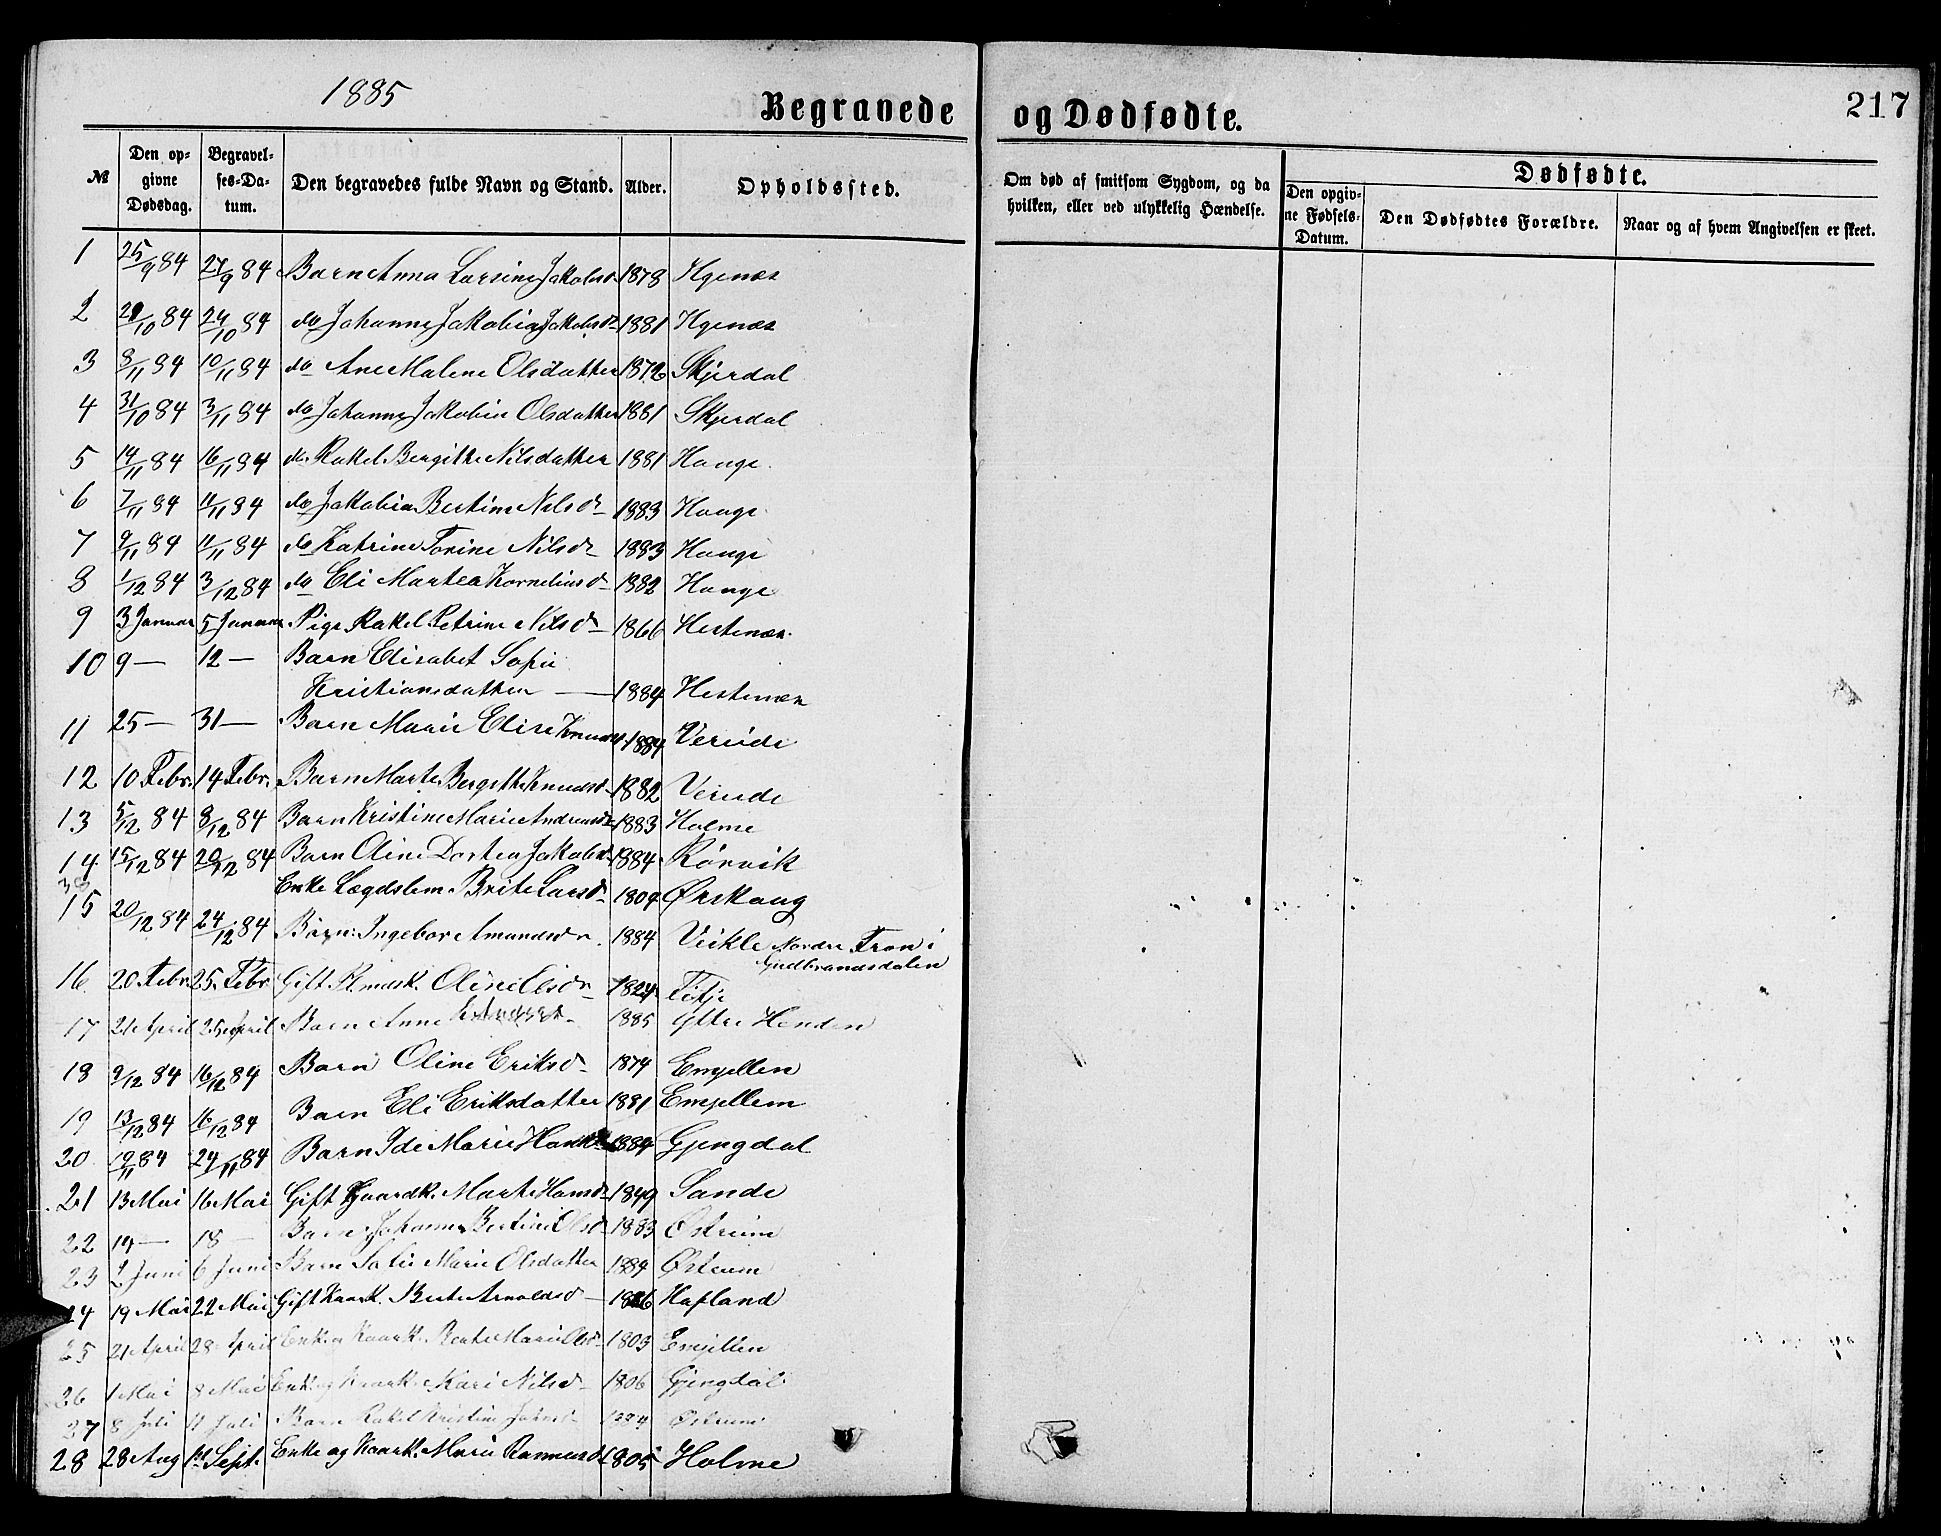 1885
Begravede og Dødfødte. 217
№ Den opgivne Dødsdag. Begravelses-Datum. Den begravedes fulde Navn og Stand. Alder. Opholdssted. Om død af smitsom Sygdom, og da hvilken, eller ved ulykkelig Hændelse. Dødfødte. Den opgivne Fødsels-Datum. Den Dødfødtes Forældre. Naar og af hvem Angivelsen er skeet.
1 25/9 84 27/9 84 Barn Anna Larsine Jakobsd 1878 Hgenæs
2 21/10 84 24/10 84 do Johanne Jakobia Jakobsdr 1881 Hgenæs
3 8/11 84 10/11 84 do Ane Malene Olsdatter 1872 Skjerdal
4 31/10 84 3/11 84 do Johanne Jakobin Olsdatter 1881 Skjerdal
5 14/11 84 16/11 84 do Rakel Bergitte Nilsdatter 1881 Hauge
6 7/11 84 11/11 84 do Jakobia Bertine Nilsdr 1883 Hauge
7 9/11 84 11/11 84 do Katrine Torine Nilsdr 1883 Hauge
8 1/12 84 3/12 84 do Eli Martea Korneliusd 1882 Hauge
9 3 Januar 5 Januar Pige Rakel Petrine Nilsd 1866 Hestenæs
10 9 — 12 — Barn Elisabet Sofie
Kristiansdatter — 1884 Hestenæs
11 25 — 31 — Barn Marie Elise Knudsd. 1884 Vereide
12 10 Febr. 14 Febr. Barn Marte Bergitte Knudsd 1882 Vereide
13 5/12 84 8/12 84 Barn Kristine Marie Andreasd 1883 Holme
14 15/12 84 20/12 84 Barn Oline Dortea Jakobsd 1884 Rörvik
38 Enke Lægdslem Brite Larsd 1809 Ørskoug
15 20/12 84 24/12 84 Barn: Ingebor Amundsdr. 1884 Veikle Nordre Fron i
Gudbrandsdalen
16 20 Febr 25 Febr Gift Oline Olsdr 1824 Tötje
17 21 April 25 April Barn Anne 1885 Yttre Henden
18 9/12 84 16/12 84 Barn Oline Eriksd 1874 Emjellen
19 13/12 84 16/12 84 Barn Eli Eriksdatter 1881 Emjellem
20 19/11 84 24/11 84 Barn Ide Marie 1884 Gjengdal
21 13 Mai 16 Mai Gift Gaardk. Marte Hansd 1849 Sande
22 14 — 18 — Barn Johanne Bertine Olsd 1883 Østreim
23 2 Juni 6 Juni Barn Sofie Marie Olsdatter 1884 Østreim
24 19 Mai 22 Mai Gift Kaark. Berte Arnoldsd — Hafland
25 21 April 28 April Enke og Kaark. Berte Marie Olsd 1803 Emjellen
26 1 Mai 8 Mai Enke og Kaark. Kari Nilsd 1806 Gjengdal
27 8 Juli 11 Juli Barn Rakel Kristine 1884 Østreim
28 28 Aug 1st Sept. Enke og Kaark. Marie Rasmusd 1805 Holme